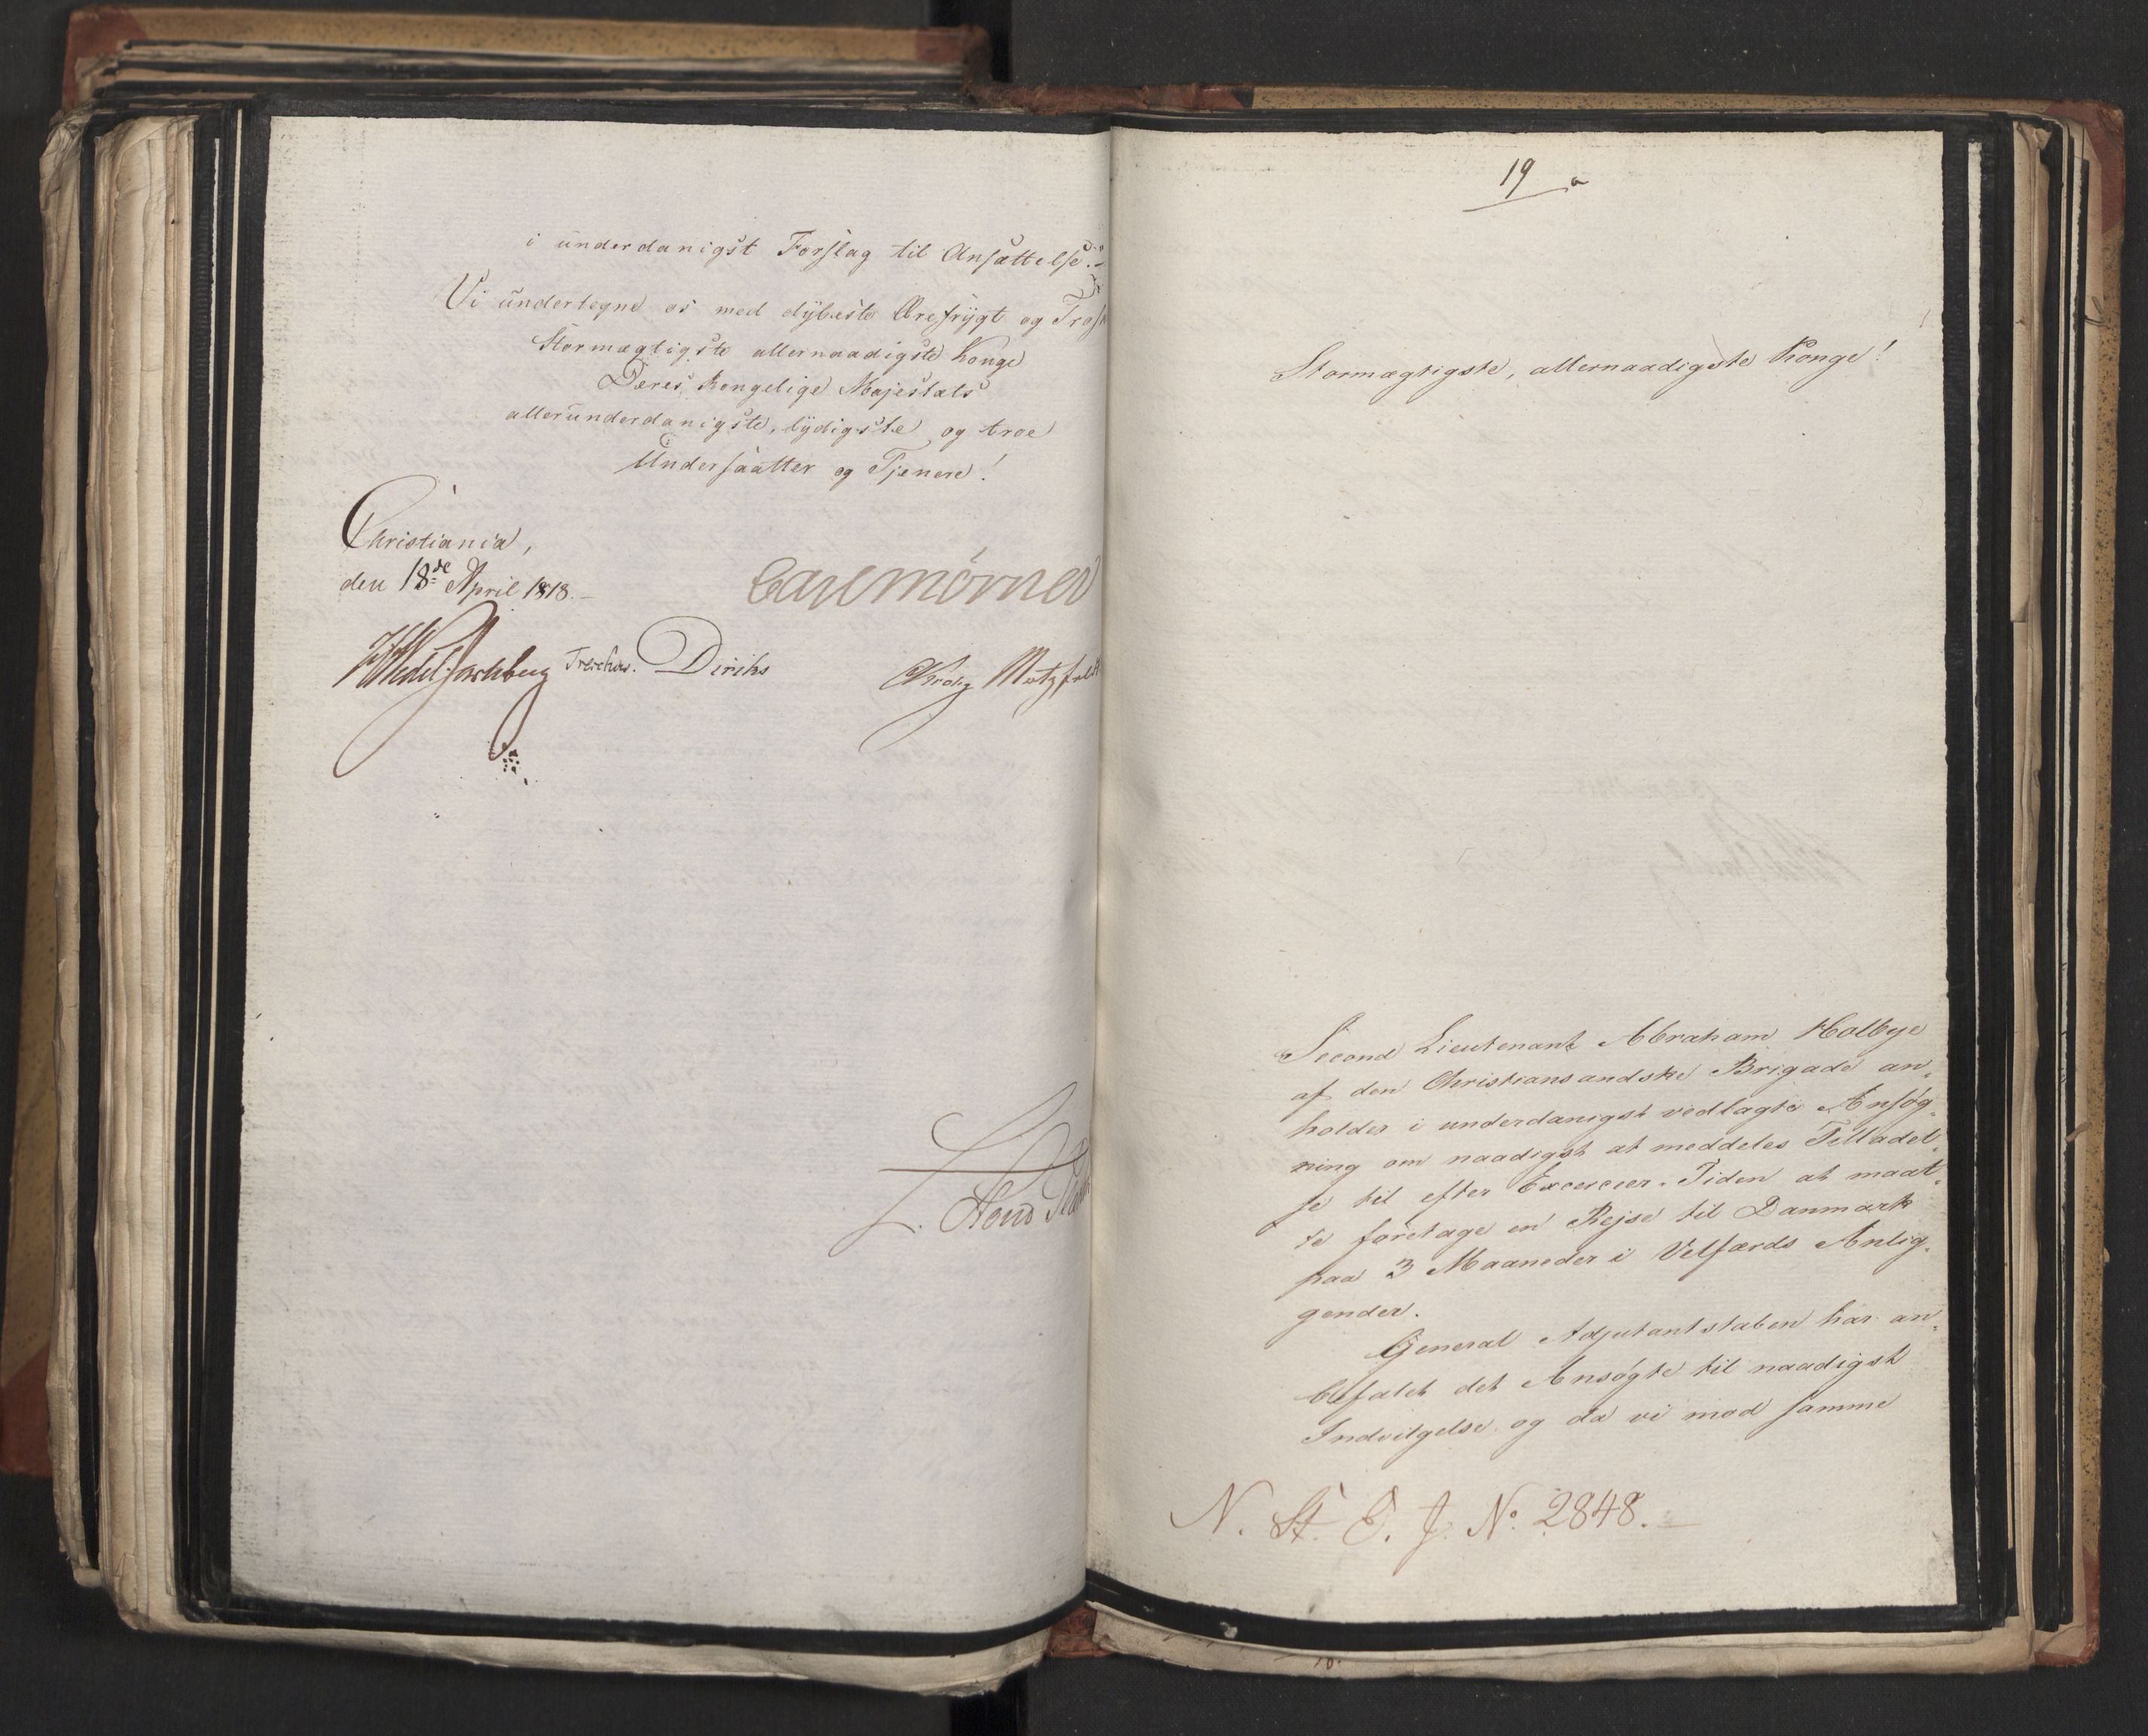 i underdanigst Forslag til Ansættelse.
Vi undertegne os med dybeste Ærefrygt og
Stormægtigste allernaadigste Konge
Deres Kongelige Majestæts
allerunderdanigste, lydigste og troe
Undersaatter og Tjenere!
Christiania,
den 18de April 1818.
Carl Mörner
Wedel Jarlsberg Treschow. Diriks Krog Motzfeldt
19 a
Stormægtigste, allernaadigste Konge!
Second Lieutenant Abraham Holbye
af den Christiansandske Brigade an-
holder i underdanigst vedlagte Ansøg-
ning om naadigst at meddeles Tilladel-
se til efter Excerceer-Tiden at maat-
te foretage en Rejse til Danmark
paa 3 Maaneder i Velfærds Anlig-
gender.
General Adjutantstaben har an-
befalet det Ansøgte til naadigst
Indvilgelse og da vi mod samme
N. St. E. J. No. 2848.